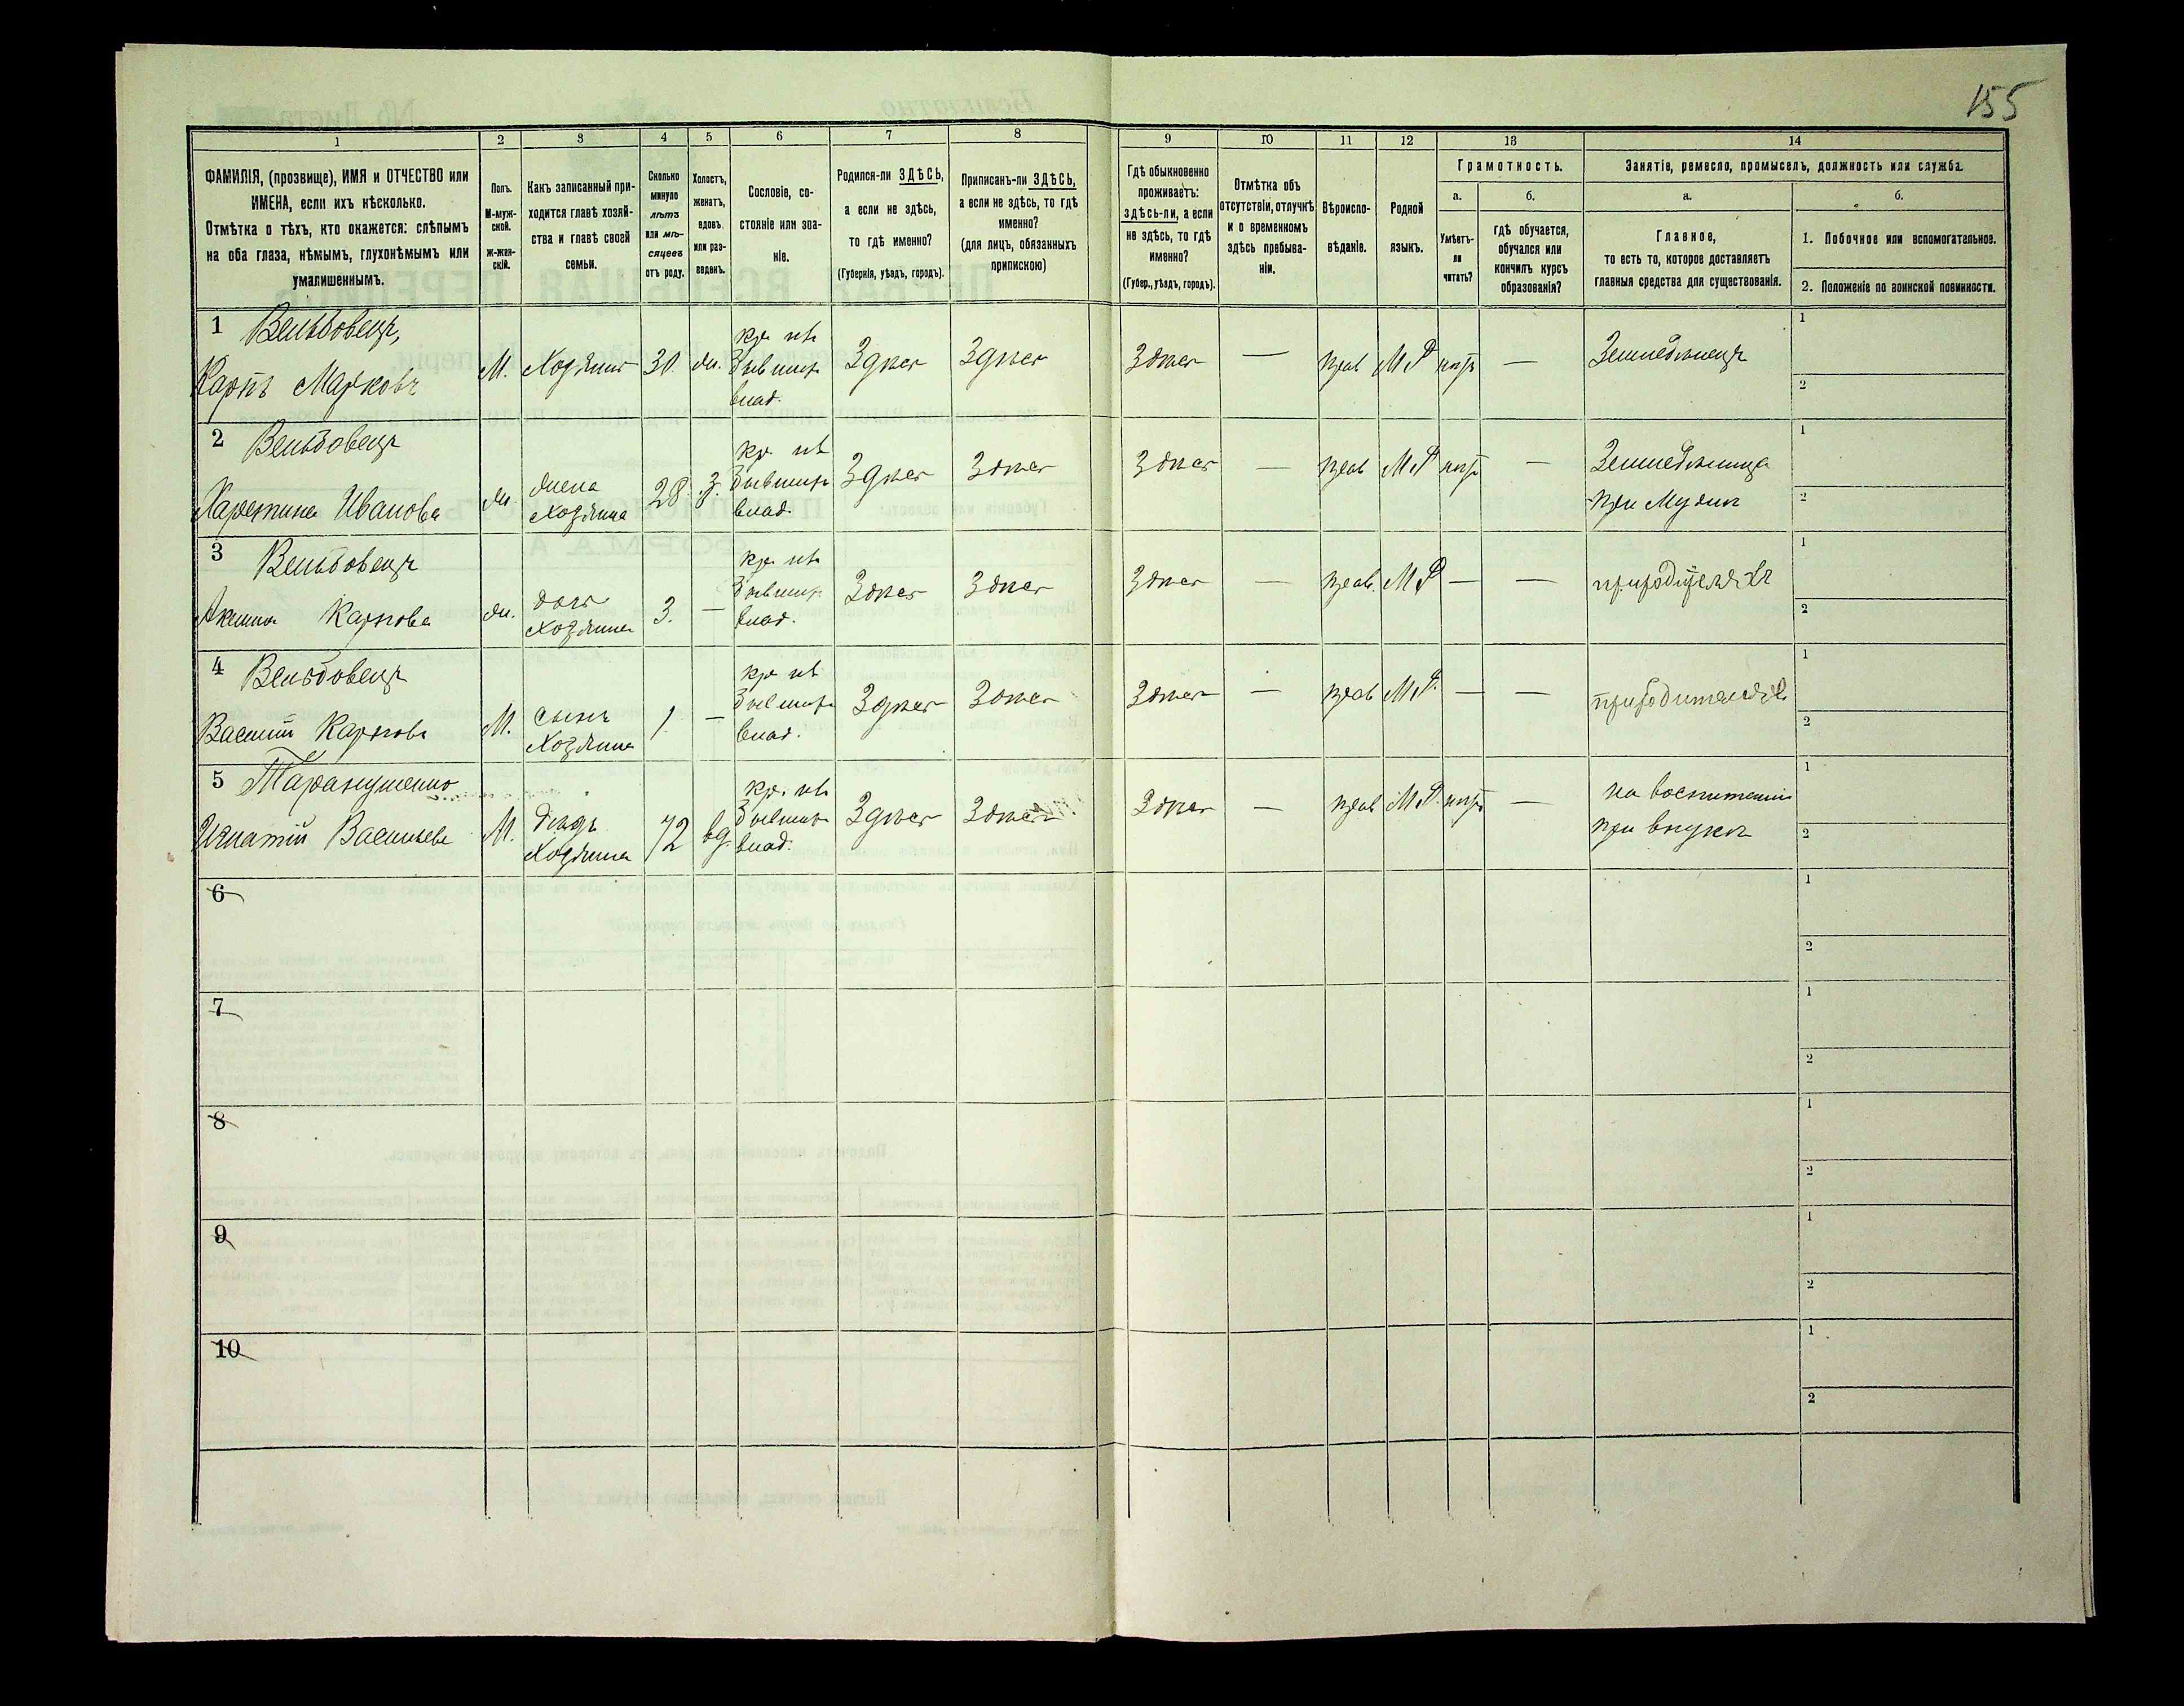 155
1
2
3
4
5
6
7
8
9
10
11
12
13
14
ФАМИЛІЯ, (прозвище), ИМЯ и ОТЧЕСТВО или
ИМЕНА, если ихъ нѣсколько.
Отмѣтка о тѣхъ, кто окажется: слѣпымъ
на оба глаза, нѣмымъ, глухонѣмымъ или
умалишеннымъ.
Полъ.
М-муж-
ской.
Ж-жен-
скій.
Какъ записанный при-
ходится главѣ хозяй-
ства и главѣ своей
семьи.
Сколько
минуло
лѣтъ
или мѣ-
сяцевъ
отъ роду.
Холостъ,
женатъ,
вдовъ
или раз-
веденъ.
Сословіе, со-
стояніе или зва-
ніе.
Родился-ли ЗДѢСЬ,
а если не здѣсь,
то гдѣ именно?
(Губернія, уѣздъ, городъ).
Приписанъ-ли ЗДѢСЬ,
а если не здѣсь, то гдѣ
именно?
(для лицъ, обязанныхъ
припискою)
Гдѣ обыкновенно
проживаетъ:
здѣсь-ли, а если
не здѣсь, то гдѣ
именно?
(Губер., уѣздъ, городъ).
Отмѣтка объ
отсутствіи, отлучкѣ
и о временномъ
здѣсь пребыва-
ніи.
Вѣроиспо-
вѣданіе.
Родной
языкъ.
Грамотность.
а.
Умѣетъ-
ли
читать?
б.
гдѣ обучается,
обучался или
кончилъ курсъ
образованія?
Занятіе, ремесло, промыселъ, должность или служба.
а.
Главное,
то есть то, которое доставляетъ
главныя средства для существованія.
б.
1. Побочное или вспомогательное.
2. Положеніе по воинской повинности.
1
Карпъ Марковъ
М.
Хозяинъ
30
ж.
влад.
Здѣсь
Здѣсь
Здѣсь
—
прав
М Р
—
Земледѣлецъ
1
2
2
Харетина Иванова
ж.
жена
хозяина
28
З.
влад.
Здѣсь
Здѣсь
Здѣсь
—
прав
М Р
—
Земледѣлица
при мужѣ
1
2
3
Карпова
ж.
дочь
хозяина
3.
—
влад.
Здѣсь
Здѣсь
Здѣсь
—
прав.
М Р
—
—
при родителяхъ
1
2
4
Василій Карповъ
М.
сынъ
хозяина
1
—
влад.
Здѣсь
Здѣсь
Здѣсь
—
прав
М Р.
—
—
при родителяхъ
1
2
5
Таранущенко
Игнатій Васильевъ
М.
дѣдъ
хозяина
72
вд.
влад.
Здѣсь
Здѣсь
Здѣсь
—
прав
М Р.
—
на воспитаніи
при внукѣ
1
2
6
1
2
7
1
2
8
1
2
9
1
2
10
1
2